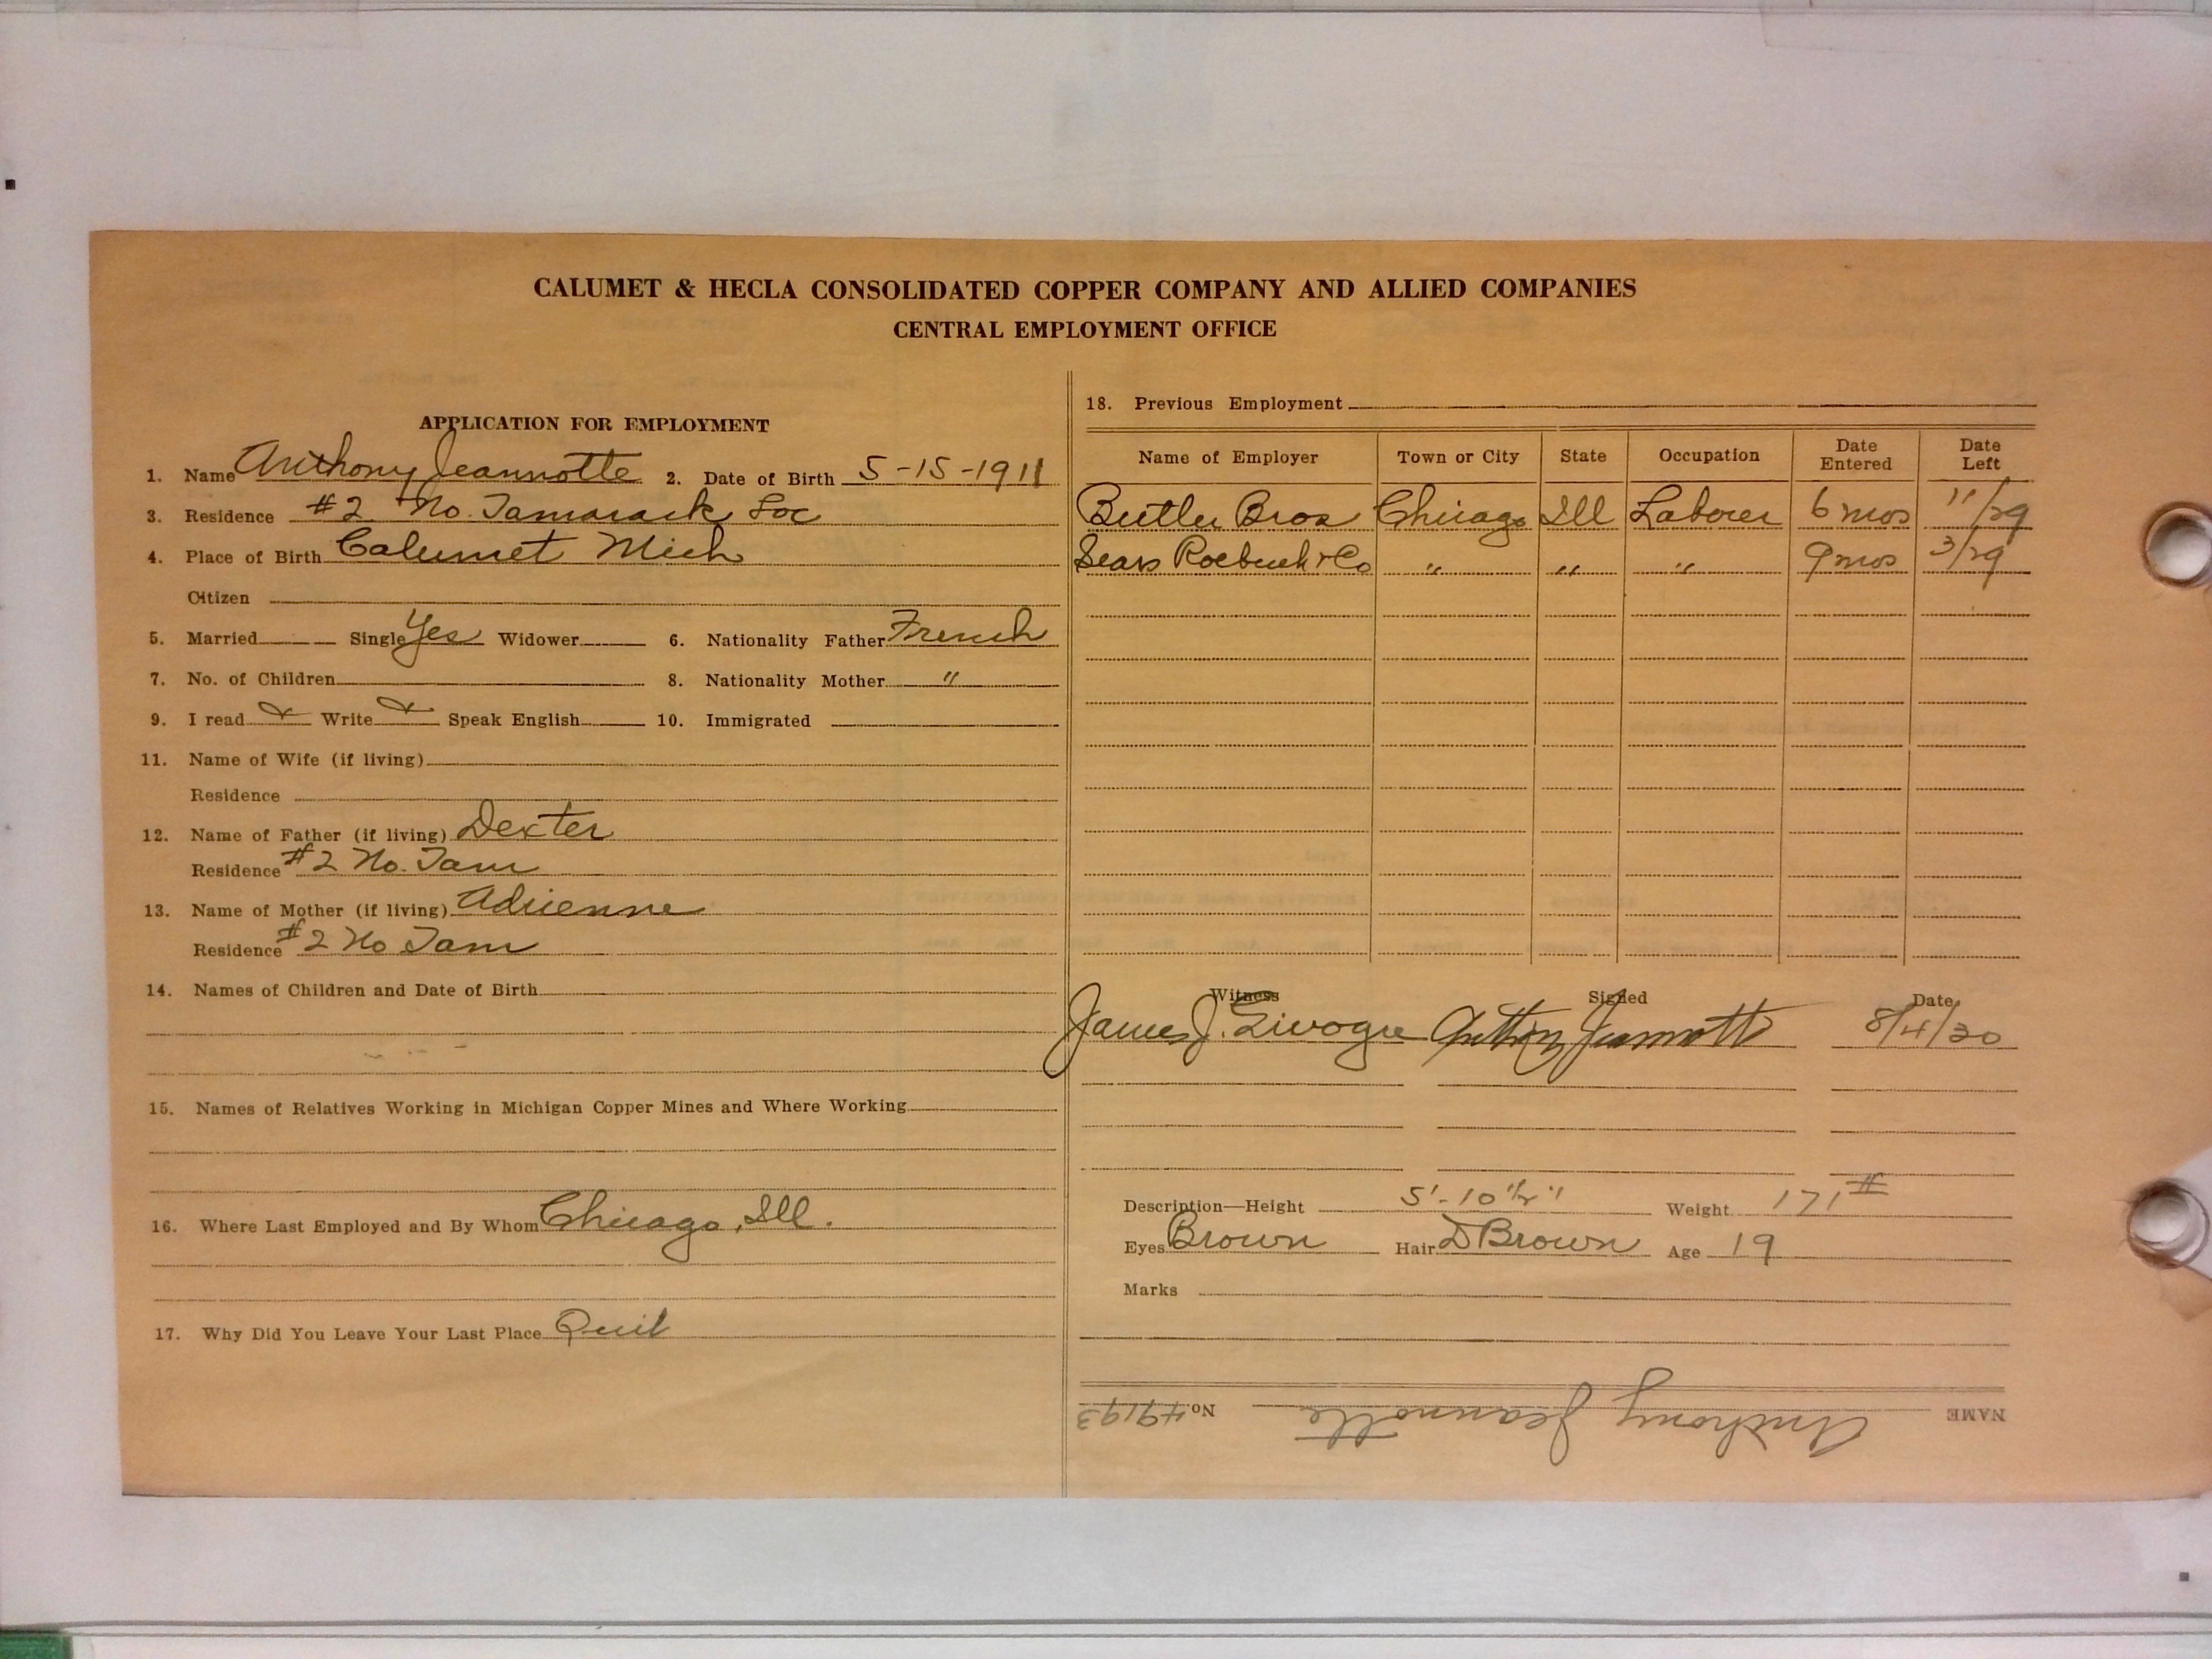 CALUMET & HECLA CONSOLIDATED COPPER COMPANY AND ALLIED COMPANIES
CENTRAL EMPLOYMENT OFFICE
APPLICATION FOR EMPLOYMENT
1. Name Anthony Jeannotte 2. Date of Birth 5-15-1911
3. Residence #2 No. Tamarack Loc
4. Place of Birth Calumet Mich
Citizen
5. Married Single Yes Widower 6. Nationality Father French
7. No. of Children 8. Nationality Mother "
9. I read Write Speak English 10. Immigrated
11. Name of Wife (if living)
Residence
12. Name of Father (if living) Dexter
Residence #2 No. Tam
13. Name of Mother (if living) Adrienne
Residence #2 No Tam
14. Names of Children and Date of Birth
15. Names of Relatives Working in Michigan Copper Mines and Where Working
16. Where Last Employed and By Whom Chicago, Ill.
17. Why Did You Leave Your Last Place Quit
18. Previous Employment
Name of Employer Town or City State Occupation Date Entered Date Left
Butler Bros Chicago Ill Laborer 6 mos 11/29
Sears Roebuck & Co " " " 9 mos 3/29
Witness Signed Date
James J. Anthony Jeannotte 8/4/30
Description—Height 5'-10 1/2" Weight 171#
Eyes Brown Hair D Brown Age 19
Marks
NAME Anthony Jeannotte No 49193